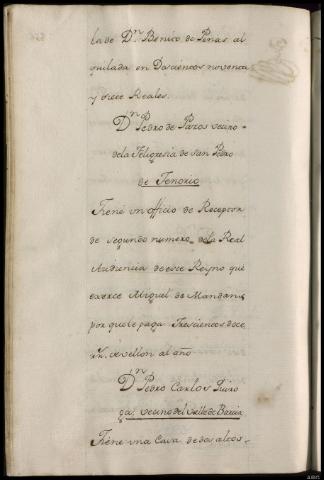 la de Dn. Benito de Penas al
quilada en Doscientos noventa
y siete Reales.
Dn. Pedro de Pazos vecino
de la Feligresia de san Pedro
de Tenorio
Tiene un officio de Receptor
de segundo numero de la Real
Audiencia de este Reyno que
exerce Miguel de
por que le paga Trescientos doce
rrs. de vellon al año
Dn. Pedro Carlos Quiro
ga vecino del Valle de Barcia
Tiene una Casa de dos altos